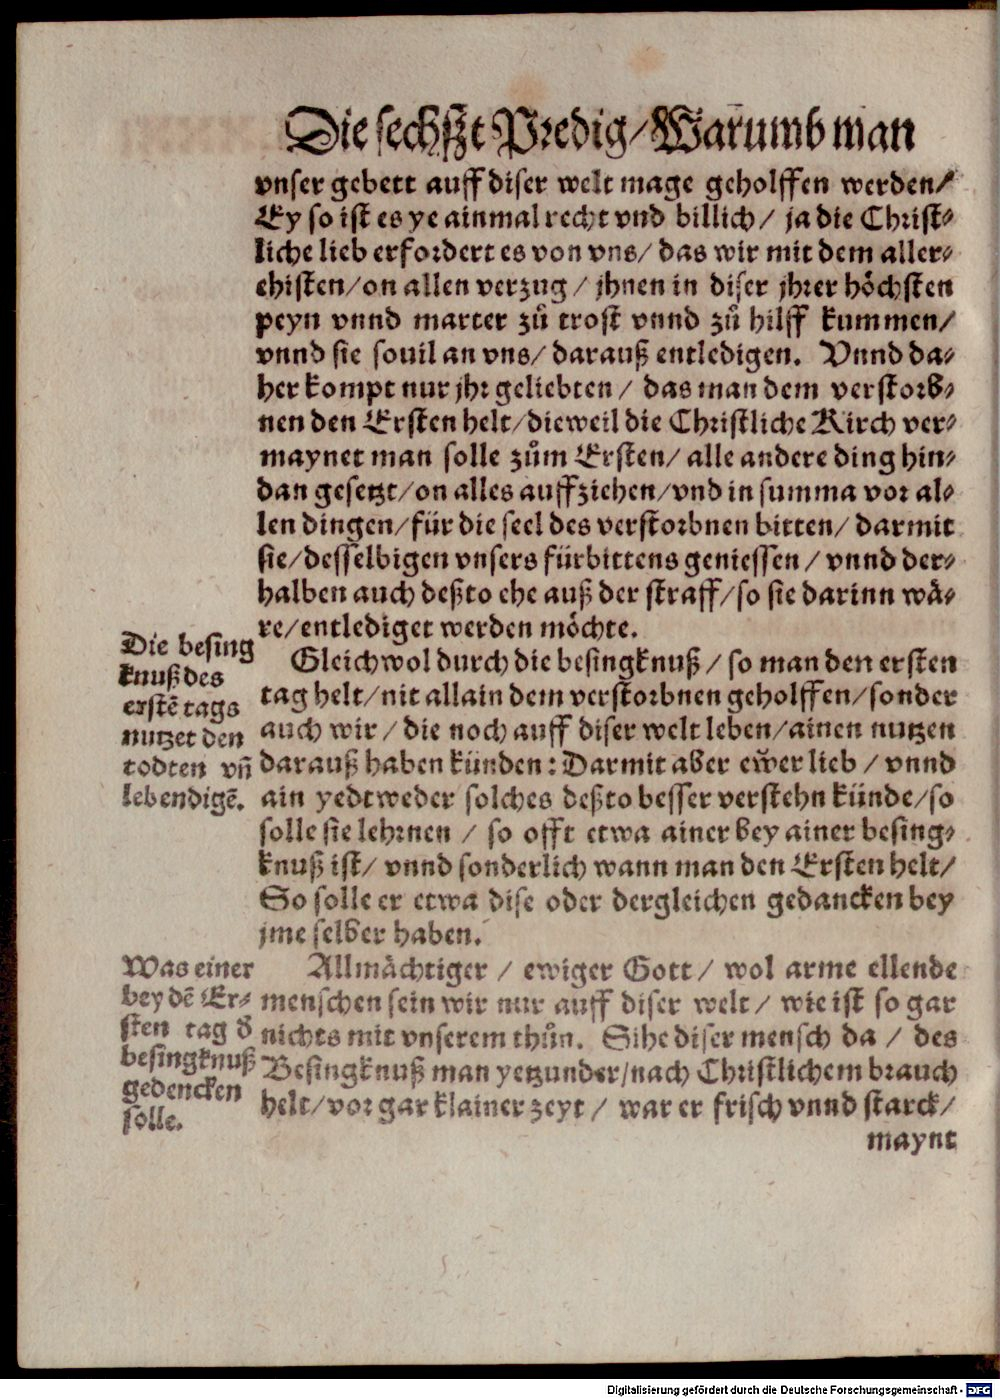 Die sechßt Predig/Warumb man
vnser gebett auff diser welt mage geholffen werden/
Ey so ist es ye ainmal recht vnd billich/ ja die Christ⸗
liche lieb erfordert es von vns/ das wir mit dem aller⸗
ehisten/on allen verzug / jhnen in diser jhrer höchsten
peyn vnnd marter zů trost vnnd zů hilff kummen/
vnnd sie souil an vns/ darauß entledigen. Vnnd da⸗
her kompt nur jhr geliebten / das man dem verstorb⸗
nen den Ersten helt/dieweil die Christliche Kirch ver⸗
maynet man solle zům Ersten/ alle andere ding hin⸗
dan gesetzt/on alles auffziehen/vnd in summa vor al⸗
len dingen/für die seel des verstorbnen bitten/ darmit
sie/desselbigen vnsers fürbittens geniessen / vnnd der⸗
halben auch deßto ehe auß der straff/so sie darinn wä⸗
re/entlediget werden möchte.
Die besing
knuß des
erstē tags
nutzet den
todten vñ
lebendigē.
Gleichwol durch die besingknuß / so man den ersten
tag helt/nit allain dem verstorbnen geholffen/sonder
auch wir / die noch auff diser welt leben/ainen nutzen
darauß haben künden: Darmit aber ewer lieb / vnnd
ain yedtweder solches deßto besser verstehn künde/so
solle sie lehrnen / so offt etwa ainer bey ainer besing⸗
knuß ist/ vnnd sonderlich wann man den Ersten helt/
So solle er etwa dise oder dergleichen gedancken bey
jme selber haben.
Was einer
bey dē Er⸗
sten tag d
besingknuß
gedencken
solle.
Allmächtiger / ewiger Gott/ wol arme ellende
menschen sein wir nur auff diser welt / wie ist so gar
nichts mit vnserem thůn. Sihe diser mensch da / des
Besingknuß man yetzunder/nach Christlichem brauch
helt/vor gar klainer zeyt / war er frisch vnnd starck/
maynt
Digitalisierung gefördert durch die Deutsche Forschungsgemeinschaft - DFG